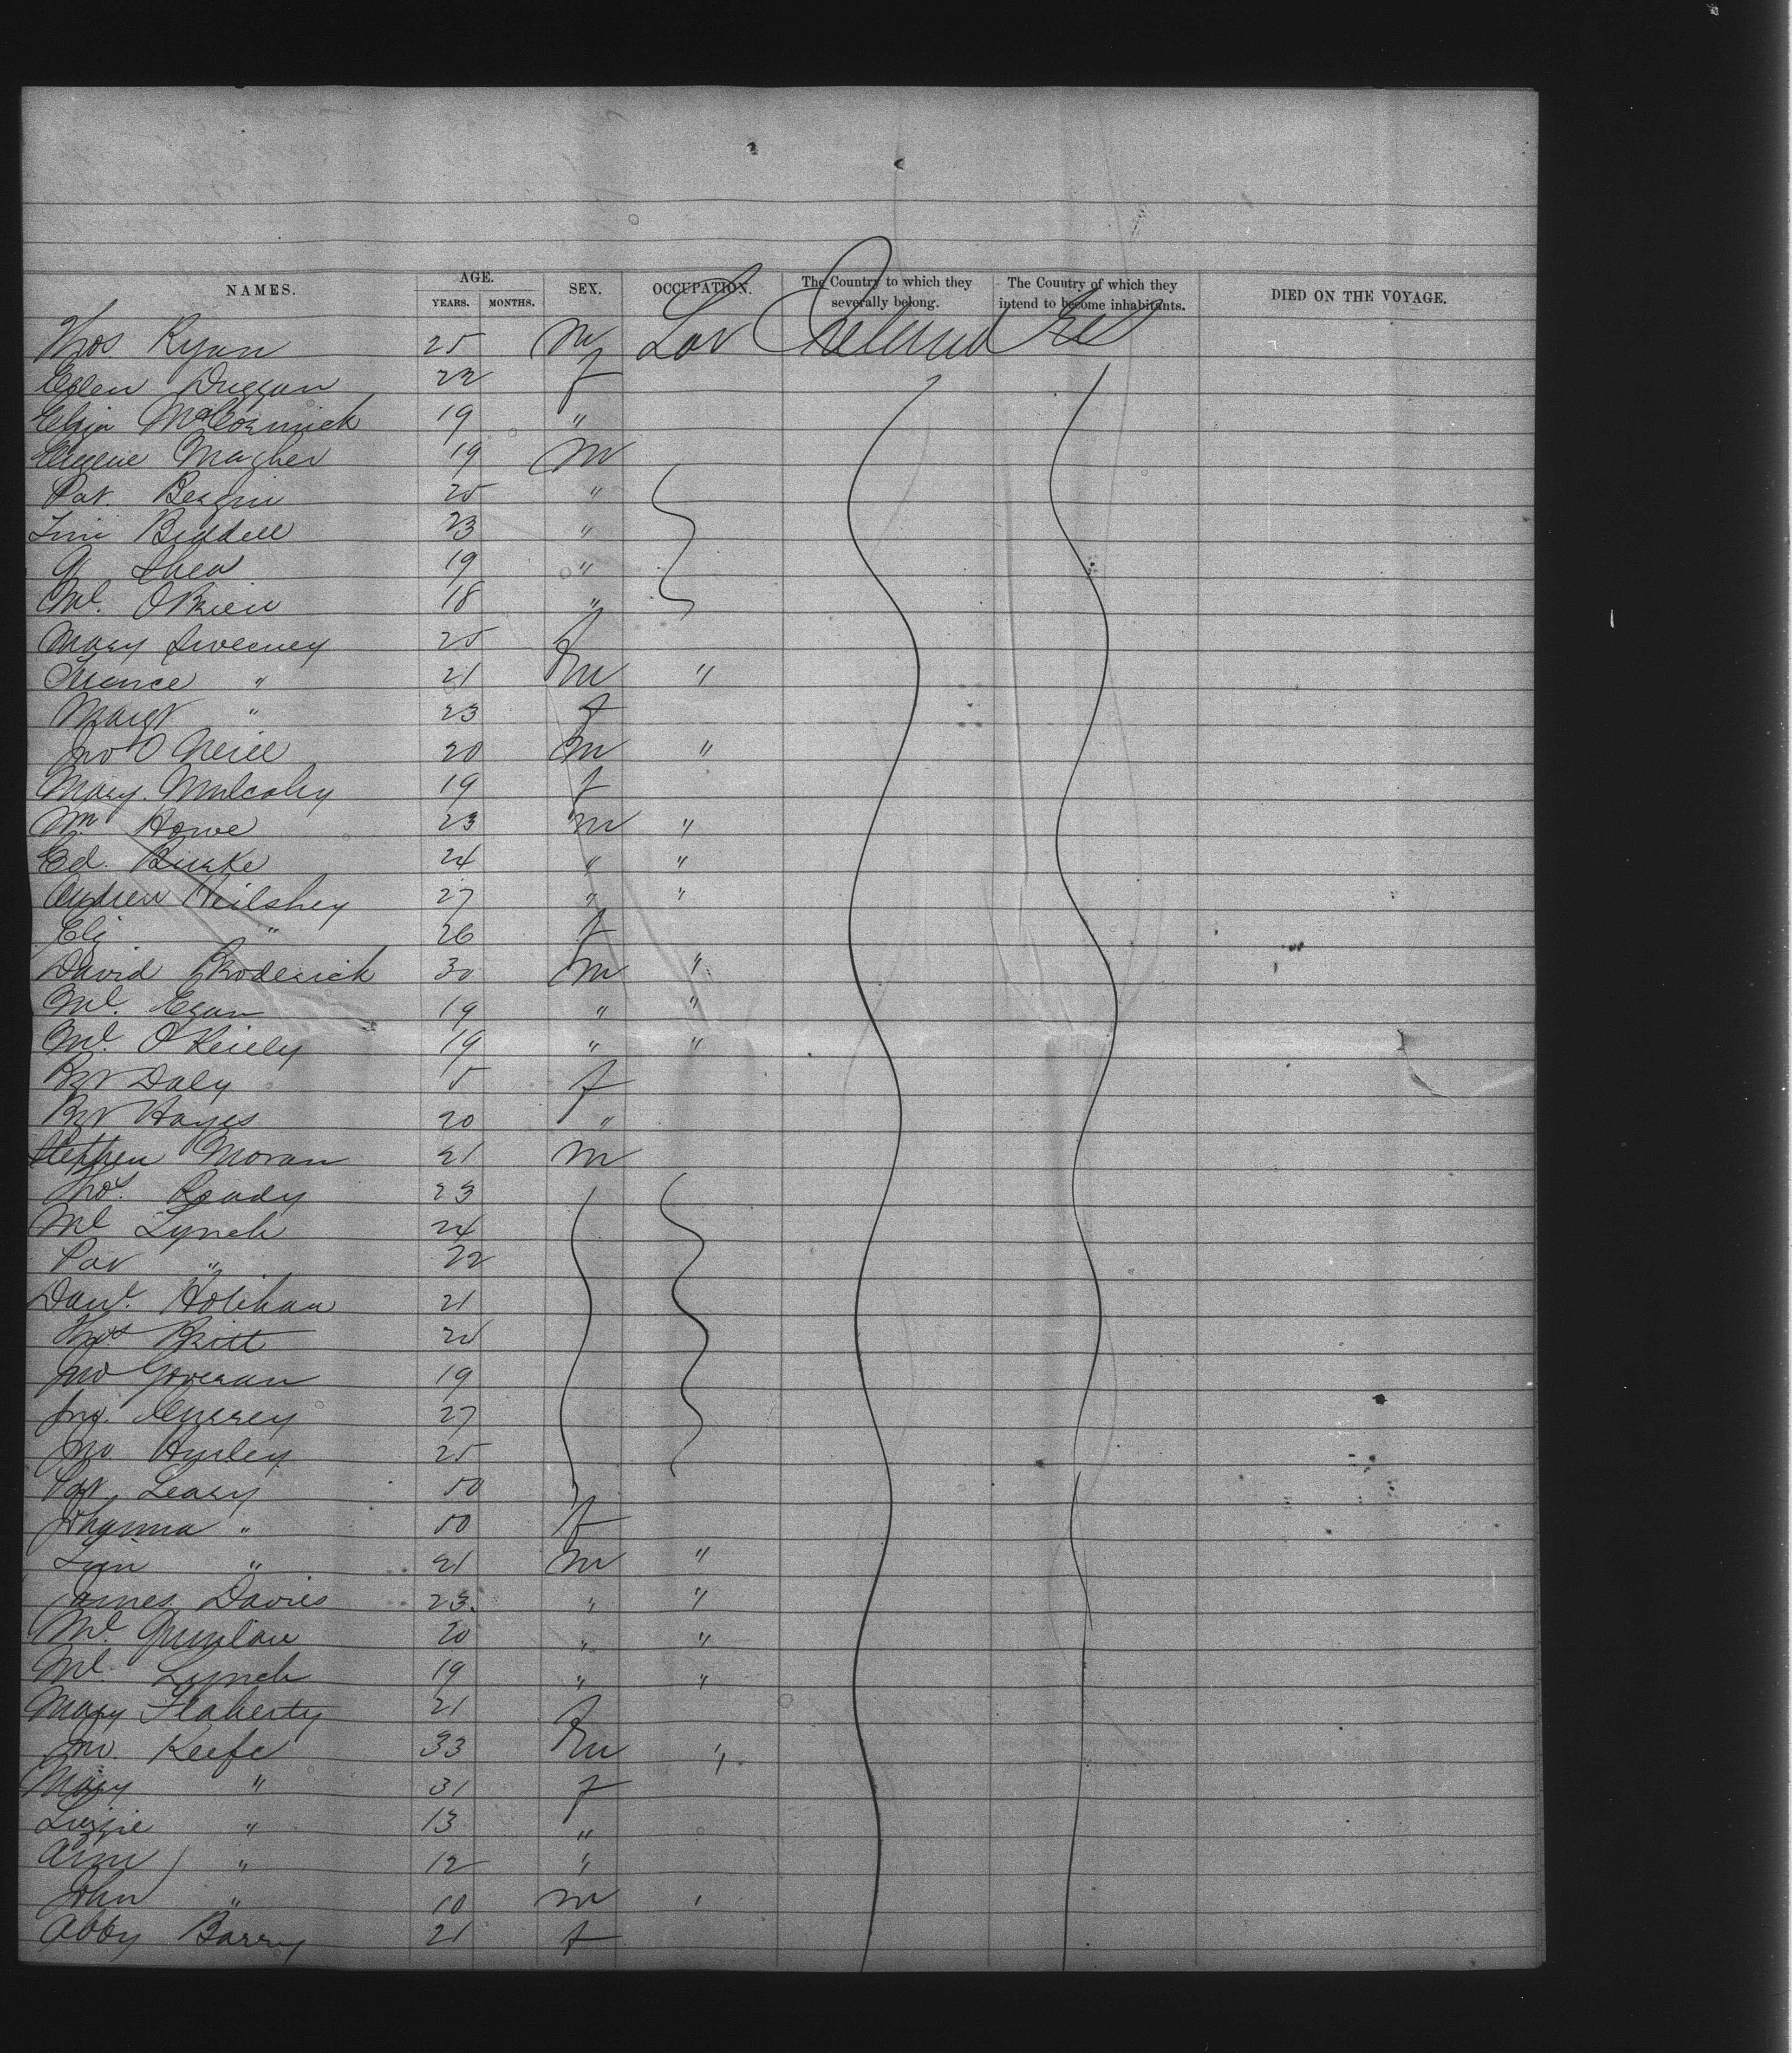 NAMES. AGE. YEARS. MONTHS. SEX. OCCUPATION. The Country to which they severally belong. The Country of which they intend to become inhabitants. DIED ON THE VOYAGE.
Thos Ryan 25 m Lab Ireland
Ellen Duggan 22 f
Eliza McCormick 19 "
Eugene Magher 19 m
Pat. Bergin 25 "
Tim Biddell 23 "
Shea 19 "
Ml. OBrien 18 "
Mary Sweeney 25 f
" 21 m "
Margt " 23 f
Jno O Neill 20 m "
Mary Mulcahy 19 f
Wm Howe 23 m "
Ed. Burke 24 " "
Andrew Neilshey 27 " "
Eliz " 26 f
David Broderick 30 m "
Ml. Egan 19 " "
Ml. O'Reiely 19 " "
Bgt Daly 5 f
Bgt Hayes 20 "
Stephen Moran 21 m
Thos. Ready 23
Ml Lynch 24
Pat " 22
Danl. Holihan 21
Thos Britt 21
Jno Goveran 19
Jno. Currey 27
Jno Hurley 25
Pat. Leary 50
Johanna " 50 f
Tim " 21 m "
James Davies 23. " "
Ml. Quinlan 20 " "
Ml. Lynch 19 " "
Mary Flaherty 21 f
Jno. Keefe 33 m "
Mary " 31 f
Lizzie " 13 "
Ann " 12 "
John " 10 m
Abby Barry 21 f